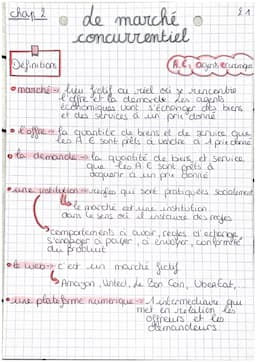 chap 2
£1
de marché
concurrentiel
Définitions
A.E: agents économiques
• marché → lieu fictif ou réel où se rencontre
l'offre et la demande. Les agents
économiques vont s'échanger des biens
et des services à un prix donné
• l'offre → la quantité de biens et de service que
les A.E sont prêts à vendre à 1 prix donné
• la demande → la quantité de biens, et service
que les A.E sont prêts à
acquérir à un prix donné
• une institution → règles qui sont pratiquées socialement
le marché est une institution
dans le sens où il instaure des règles
comportements à avoir, règles d'échange,
s'engager à payer, à envoyer, conformité
du produit
• le web → c'est un marché fictif
Amazon, Vinted, Le Bon Coin, UberEat,
• une plateforme numérique → 1 intermédiaire qui
met en relation les
offreurs et les
demandeurs